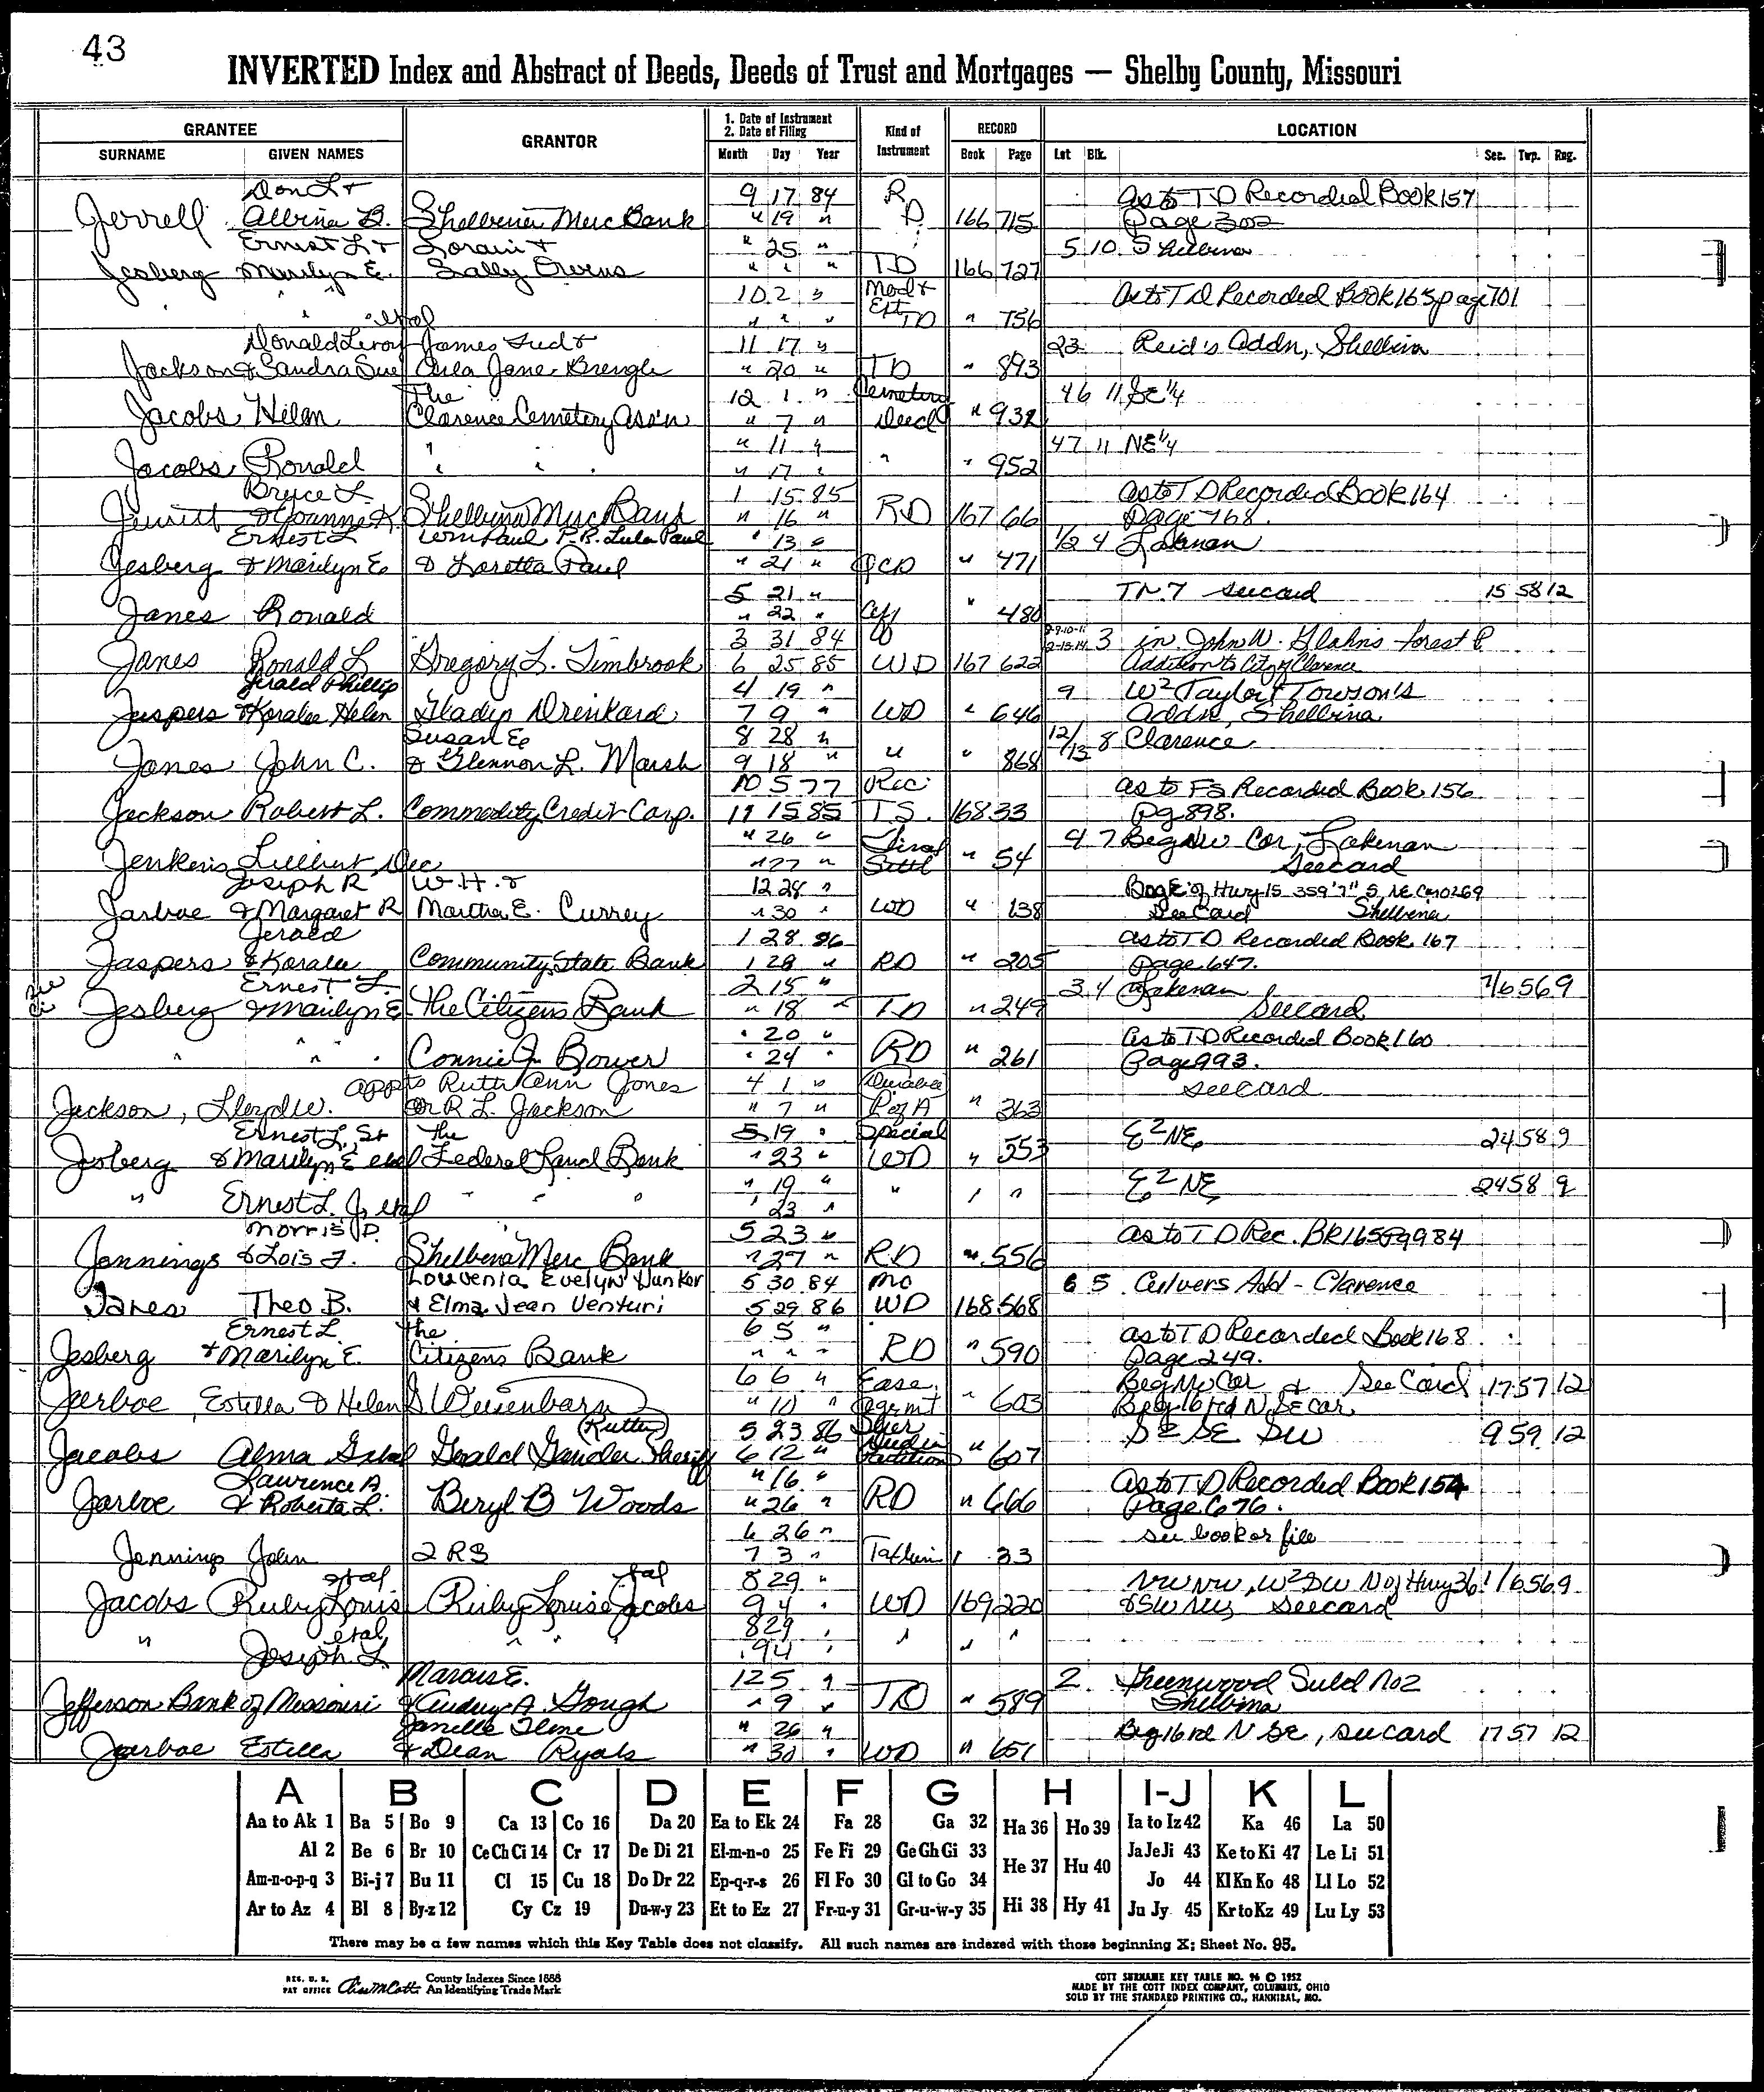 43
INVERTED Index and Abstract of Deeds, Deeds of Trust and Mortgages — Shelby County, Missouri
GRANTEE GRANTOR 1. Date of Instrument 2. Date of Filing Kind of Instrument RECORD LOCATION
SURNAME GIVEN NAMES Month Day Year Book Page Lot Blk. Sec. Twp. Rng.
Don L & 9 17 84 R As to TD Recorded Book 157
Jerrell Albina B. Shelbina Merc Bank " 19 " D 166 715 Page 302
Ernest L & Lorain & " 25 " 5 10 Shelbina
Jesberg Marilyn E. Sally Owens " " " TD 166 727
" " 10 2 " Mod & As to TD Recorded Book 165 page 701
" " etal " " " Ext TD " 756
Donald Leroy James Fred & 11 17 " 23 Reid's Addn, Shelbina
Jackson & Sandra Sue Arla Jane Brengle " 20 " TD " 893
The 12 1 " Cemetery 46 11 SE 1/4
Jacobs Helen Clarence Cemetery Ass'n " 7 " Deed " 932
" 11 " 47 11 NE 1/4
Jacobs Ronald " " " " 17 " " " 952
Bryce L. 1 15 85 As to TD Recorded Book 164
Jewitt & Joanne K Shelbina Merc Bank " 16 " RD 167 66 Page 768.
Ernest L Wm Paul P.R. Lula Paul " 13 " 1/2 4 Lakenan
Jesberg & Marilyn E. & Loretta Paul " 21 " QCD " 471
5 21 " TR. 7 see card 15 58 12
Janes Ronald " 22 " Aff " 480
3 31 84 3 in John W. Glahn's Forest P.
Janes Ronald L Gregory L. Timbrook 6 25 85 WD 167 622 Addition to City of Clarence
Jerald Phillip 4 19 " 9 W2 Taylor & Towson's
Jaspers & Koralee Helen Gladys Drenkard 7 9 " WD " 646 Addn, Shelbina
Susan E. 8 28 " 12/13 8 Clarence
Janes John C. & Glennon L. Marsh 9 18 " " " 868
10 5 77 Rec. As to FS Recorded Book 156
Jackson Robert L. Commodity Credit Corp. 11 15 85 T.S. 168 33 Pg 898.
" 26 " Final 4 7 Beg NW Cor, Lakenan
Jenkens Lillburt, Dec " 27 " Settl " 54 See card
Joseph R W.H. & 12 28 " Beg E of Hwy 15 359'7" S, NE Cor O269
Jarboe & Margaret R Martha E. Currey " 30 " WD " 138 See Card Shelbina
Jerald 1 28 86 As to TD Recorded Book 167
Jaspers & Koralee Community State Bank 1 28 " RD " 205 Page 647.
Ernest L. 2 15 " 3 4 Lakenan 7/6 56 9
Jesberg & Marilyn E The Citizens Bank " 18 " TD " 249 See card
" 20 " As to TD Recorded Book 160
" " " Connie J. Bower " 24 " RD " 261 Page 993.
appts Ruth Ann Jones 4 1 " Durable See card
Jackson, Lloyd W. or R.L. Jackson " 7 " P of A " 363
Ernest L, Sr The 5 19 " Special E2 NE 24 58 9
Jesberg & Marilyn E etal Federal Land Bank " 23 " WD " 553
" 19 " E2 NE 24 58 9
" Ernest L. Jr etal " " " " 23 " " " "
Morris D. 5 23 " As to TD Rec. BK 165 Pg 984
Jennings & Lois J. Shelbina Merc Bank " 27 " RD " 556
Louvenia Evelyn Dunker 5 30 84 Mo 6 5 Culvers Add - Clarence
Janes Theo B. & Elma Jean Venturi 5 29 86 WD 168 568
Ernest L. The 6 5 " As to TD Recorded Book 168
Jesberg & Marilyn E. Citizens Bank " " " RD " 590 Page 249.
6 6 " Ease. Beg NW Cor & See Card 17 57 12
Jarboe, Estella & Helen S Weisenborn " 10 " Agrmt " 603 Beg 16 rd N SE cor.
(Rutter) 5 23 86 Sher S2 SE SW 9 59 12
Jacobs Alma G etal Gerald Gander Sheriff 6 12 " Deed in Partition " 607
Lawrence A. " 16 " As to TD Recorded Book 154
Jarboe & Roberta L. Beryl B Woods " 26 " RD " 666 Page 676.
6 26 " See book or file
Jennings John 2 RS 7 3 " Tax lien " 33
etal etal 8 29 " NW NW, W2 SW N of Hwy 36 1/6 56 9
Jacobs Ruby Louis Ruby Louise Jacobs 9 4 " WD 169 220 & SW NW See card
etal 8 29 "
" Joseph L " " " 9 4 " " " "
Marcus E. 12 5 " 2 Greenwood Subd No 2
Jefferson Bank of Missouri & Audrey A. Gough " 9 " TD " 589 Shelbina
Janelle Ilene " 26 " Beg 16 rd N SE, see card 17 57 12
Jarboe Estella & Dean Ryals " 30 " WD " 651
A B C D E F G H I-J K L
Aa to Ak 1 Ba 5 Bo 9 Ca 13 Co 16 Da 20 Ea to Ek 24 Fa 28 Ga 32 Ha 36 Ho 39 Ia to Iz 42 Ka 46 La 50
Al 2 Be 6 Br 10 Ce Ch Ci 14 Cr 17 De Di 21 El-m-n-o 25 Fe Fi 29 Ge Gh Gi 33 He 37 Hu 40 Ja Je Ji 43 Ke to Ki 47 Le Li 51
Am-n-o-p-q 3 Bi-j 7 Bu 11 Cl 15 Cu 18 Do Dr 22 Ep-q-r-s 26 Fl Fo 30 Gl to Go 34 Jo 44 Kl Kn Ko 48 Ll Lo 52
Ar to Az 4 Bl 8 By-z 12 Cy Cz 19 Du-w-y 23 Et to Ez 27 Fr-u-y 31 Gr-u-w-y 35 Hi 38 Hy 41 Ju Jy 45 Kr to Kz 49 Lu Ly 53
There may be a few names which this Key Table does not classify. All such names are indexed with those beginning X; Sheet No. 95.
REG. U. S. PAT OFFICE County Indexes Since 1888 An Identifying Trade Mark
COTT SURNAME KEY TABLE NO. 96 © 1952
MADE BY THE COTT INDEX COMPANY, COLUMBUS, OHIO
SOLD BY THE STANDARD PRINTING CO., HANNIBAL, MO.